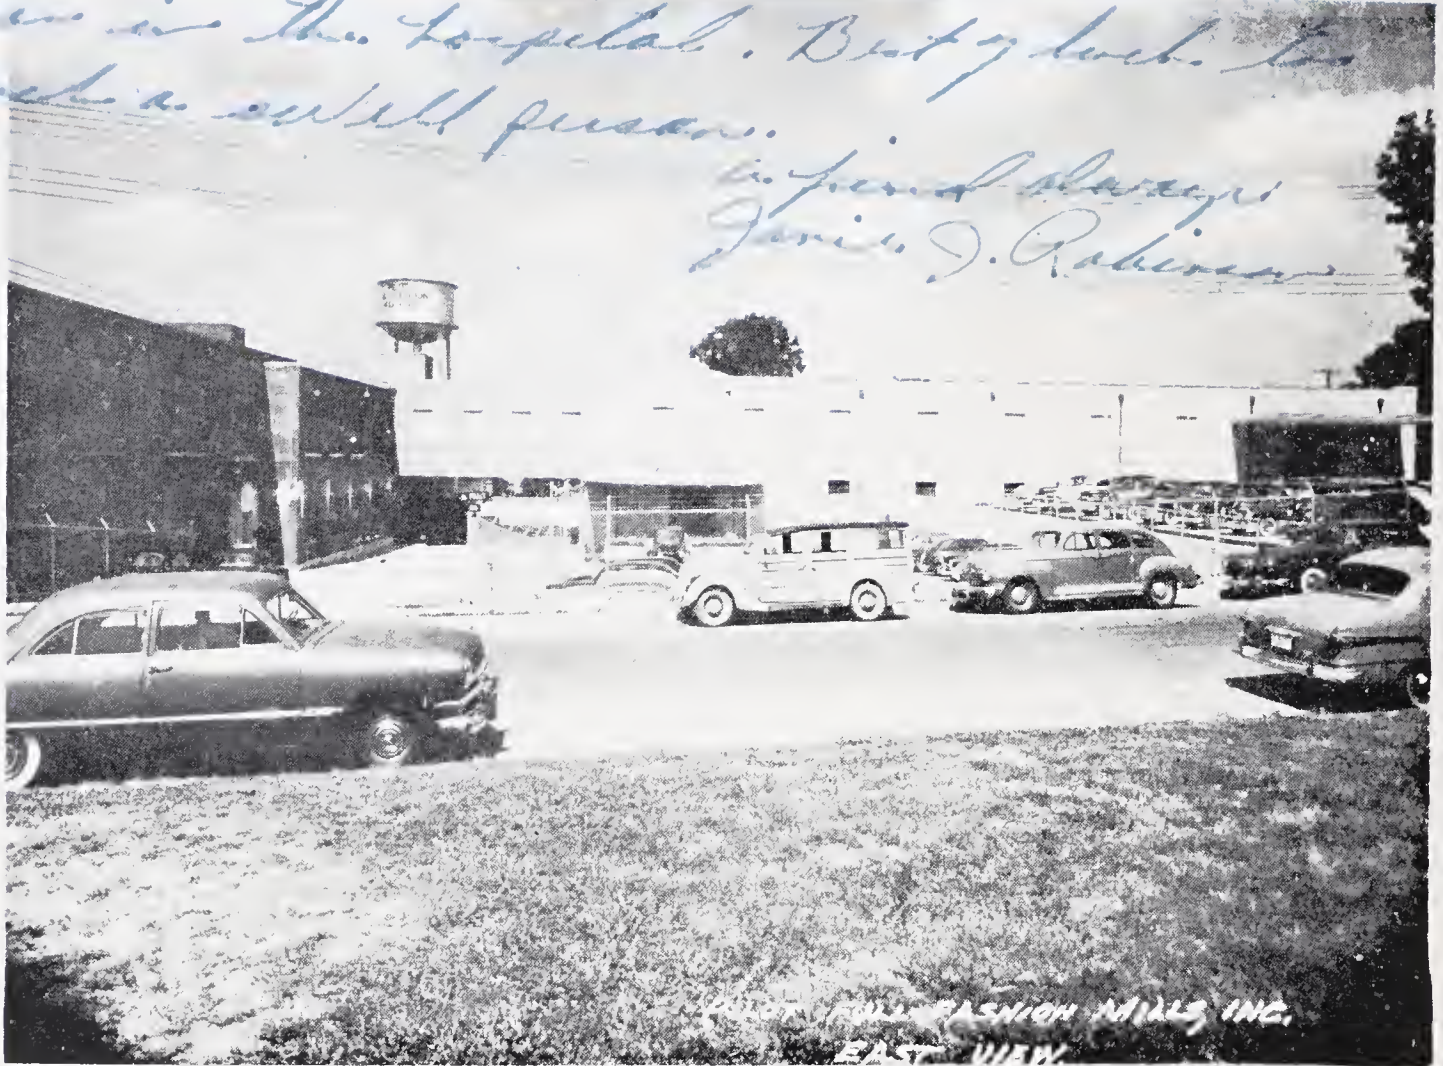 in the hospital. Best of luck to
a swell person.
a friend always
J. Robinson
PILOT FULL FASHION MILLS, INC.
EAST VIEW